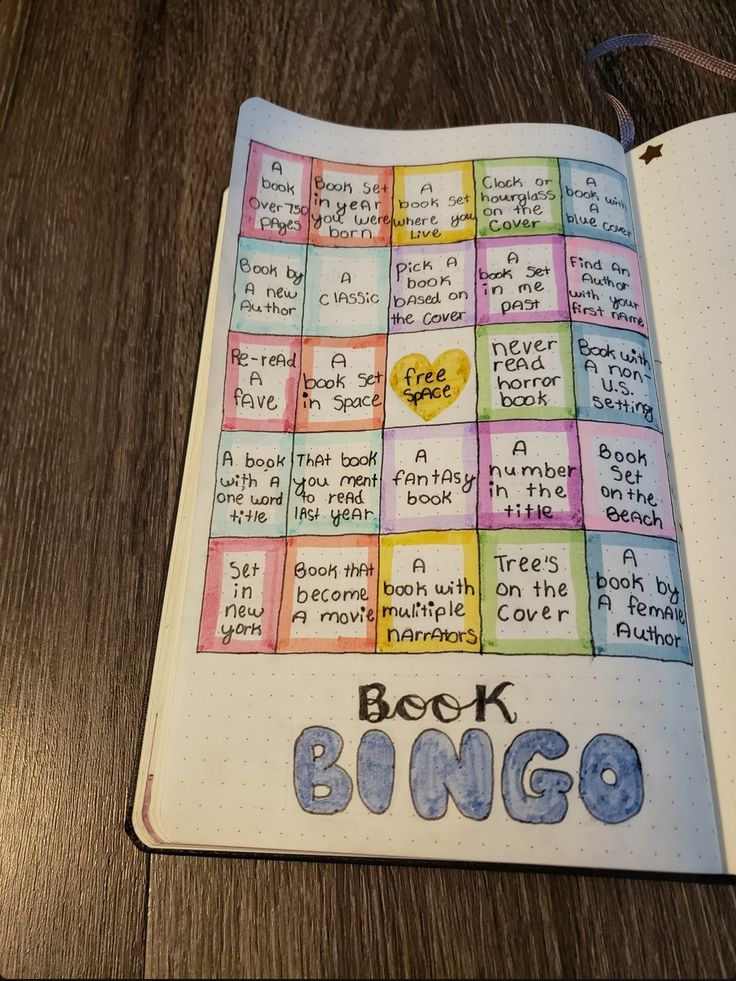 A
book
over 750
pages
Book set
in year
you were
born
A
book set
where you
Live
Clock or
hourglass
on the
Cover
A
book with
A
blue cover
Book by
A new
Author
A
classic
Pick A
book
based on
the cover
A
book set
in me
past
Find An
Author
with your
first name
Re-read
A
fave
A
book set
in space
free
space
never
read
horror
book
Book with
A non-
U.S.
setting
A book
with A
one word
title
That book
you ment
to read
last year
A
fantasy
book
A
number
in the
title
Book
Set
on the
Beach
Set
in
new
york
Book that
become
A movie
A
book with
mulitiple
narrators
Tree's
on the
Cover
A
book by
A female
Author
Book
BINGO